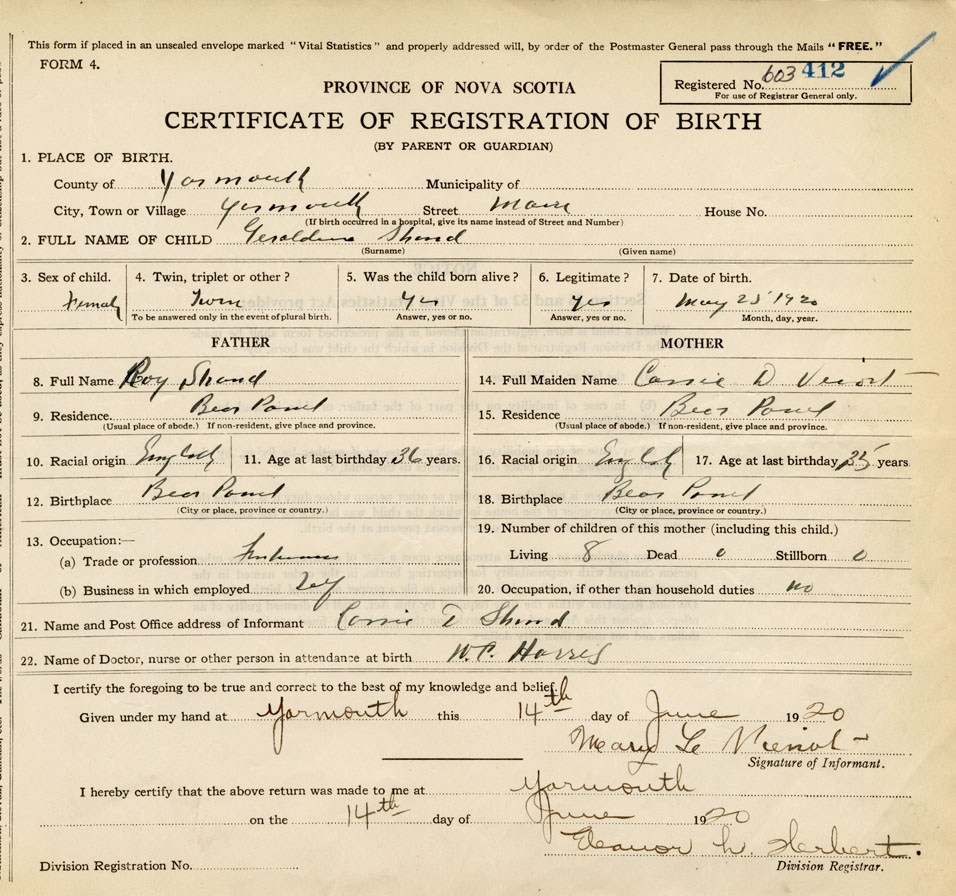 This form if placed in an unsealed envelope marked "Vital Statistics" and properly addressed will, by order of the Postmaster General pass through the Mails "FREE."
FORM 4.
Registered No. 603 412
For use of Registrar General only.
PROVINCE OF NOVA SCOTIA
CERTIFICATE OF REGISTRATION OF BIRTH
(BY PARENT OR GUARDIAN)
1. PLACE OF BIRTH.
County of Yarmouth Municipality of
City, Town or Village Yarmouth Street Main House No.
(If birth occurred in a hospital, give its name instead of Street and Number)
2. FULL NAME OF CHILD Geraldine Shand
(Surname) (Given name)
3. Sex of child. 4. Twin, triplet or other? 5. Was the child born alive? 6. Legitimate? 7. Date of birth.
Female Twin Yes Yes May 25 1920
To be answered only in the event of plural birth. Answer, yes or no. Answer, yes or no. Month, day, year.
FATHER MOTHER
8. Full Name Roy Shand 14. Full Maiden Name Cassie D
9. Residence. Bear Point 15. Residence Bear Point
(Usual place of abode.) If non-resident, give place and province. (Usual place of abode.) If non-resident, give place and province.
10. Racial origin English 11. Age at last birthday 36 years. 16. Racial origin English 17. Age at last birthday 35 years.
12. Birthplace Bear Point 18. Birthplace Bear Point
(City or place, province or country.) (City or place, province or country.)
13. Occupation:— 19. Number of children of this mother (including this child.)
(a) Trade or profession Fisherman Living 8 Dead 0 Stillborn 0
(b) Business in which employed 20. Occupation, if other than household duties no
21. Name and Post Office address of Informant Cassie D Shand
22. Name of Doctor, nurse or other person in attendance at birth W.C. Harris
I certify the foregoing to be true and correct to the best of my knowledge and belief.
Given under my hand at Yarmouth this 14th day of June 1920
Mary Le
Signature of Informant.
I hereby certify that the above return was made to me at Yarmouth
on the 14th day of June 1920
Eleanor h. Herbert.
Division Registration No. Division Registrar.